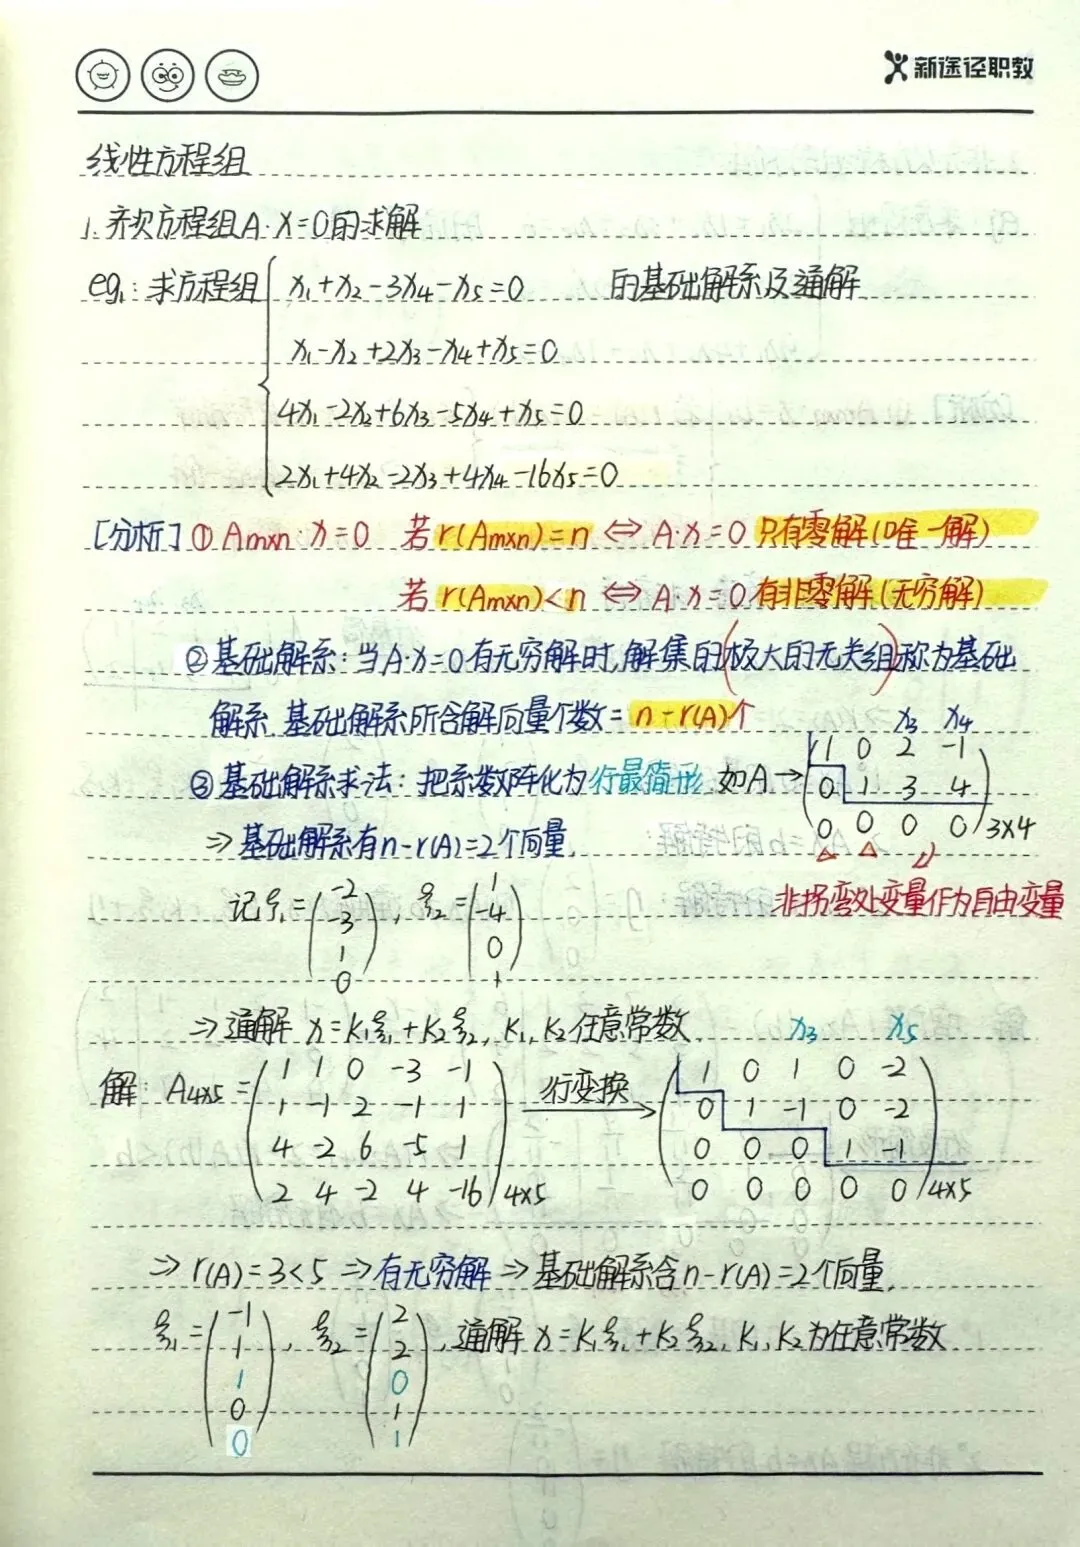 新途径职教
线性方程组
1. 齐次方程组A·x=0的求解
eg1: 求方程组 x1+x2-3x4-x5=0 的基础解系及通解
x1-x2+2x3-x4+x5=0
4x1-2x2+6x3-5x4+x5=0
2x1+4x2-2x3+4x4-16x5=0
[分析] ① Am×n·x=0 若r(Am×n)=n ⇔ A·x=0 只有零解(唯一解)
若r(Am×n)<n ⇔ A·x=0 有非零解(无穷解)
② 基础解系: 当A·x=0有无穷解时, 解集的(极大的无关组)称为基础
解系. 基础解系所含解向量个数=n-r(A)个
x3 x4
③ 基础解系求法: 把系数阵化为行最简形. 如A→
1 0 2 -1
0 1 3 4
0 0 0 0 3×4
⇒ 基础解系有n-r(A)=2个向量.
非拐弯处变量作为自由变量
记ξ1=(-2 -3 1 0), ξ2=(1 -4 0 1)
⇒ 通解 x=k1ξ1+k2ξ2, k1, k2任意常数.
x3 x5
解: A4×5= 1 1 0 -3 -1 行变换→ 1 0 1 0 -2
1 -1 2 -1 1 0 1 -1 0 -2
4 -2 6 -5 1 0 0 0 1 -1
2 4 -2 4 -16 4×5 0 0 0 0 0 4×5
⇒ r(A)=3<5 ⇒ 有无穷解 ⇒ 基础解系含n-r(A)=2个向量.
ξ1=(-1 1 1 0 0), ξ2=(2 2 0 1 1), 通解 x=k1ξ1+k2ξ2, k1, k2为任意常数